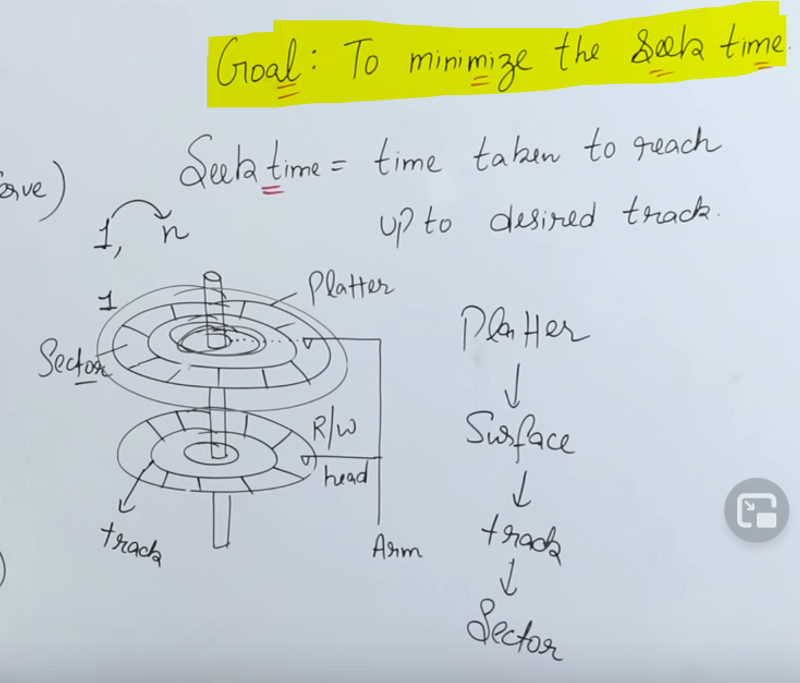 Goal: To minimize the Seek time.
Seek time = time taken to reach
up to desired track.
1, n
1
Platter
Sector
R/W
head
track
Arm
Platter
Surface
track
Sector